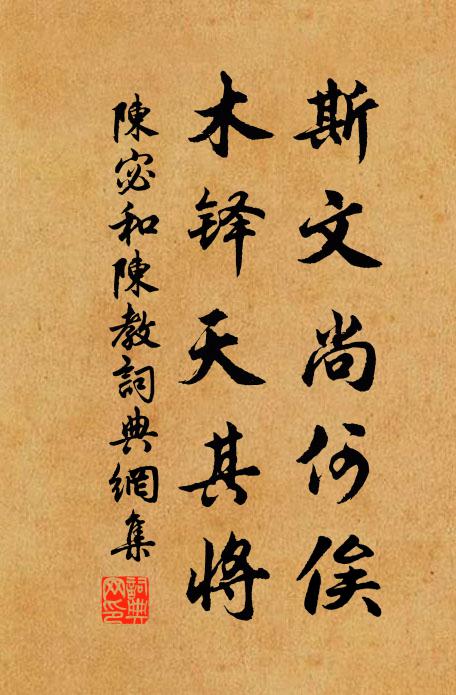 斯文尚何俟
木铎天其将
陳宓和陳教詞典網集
詞典網印